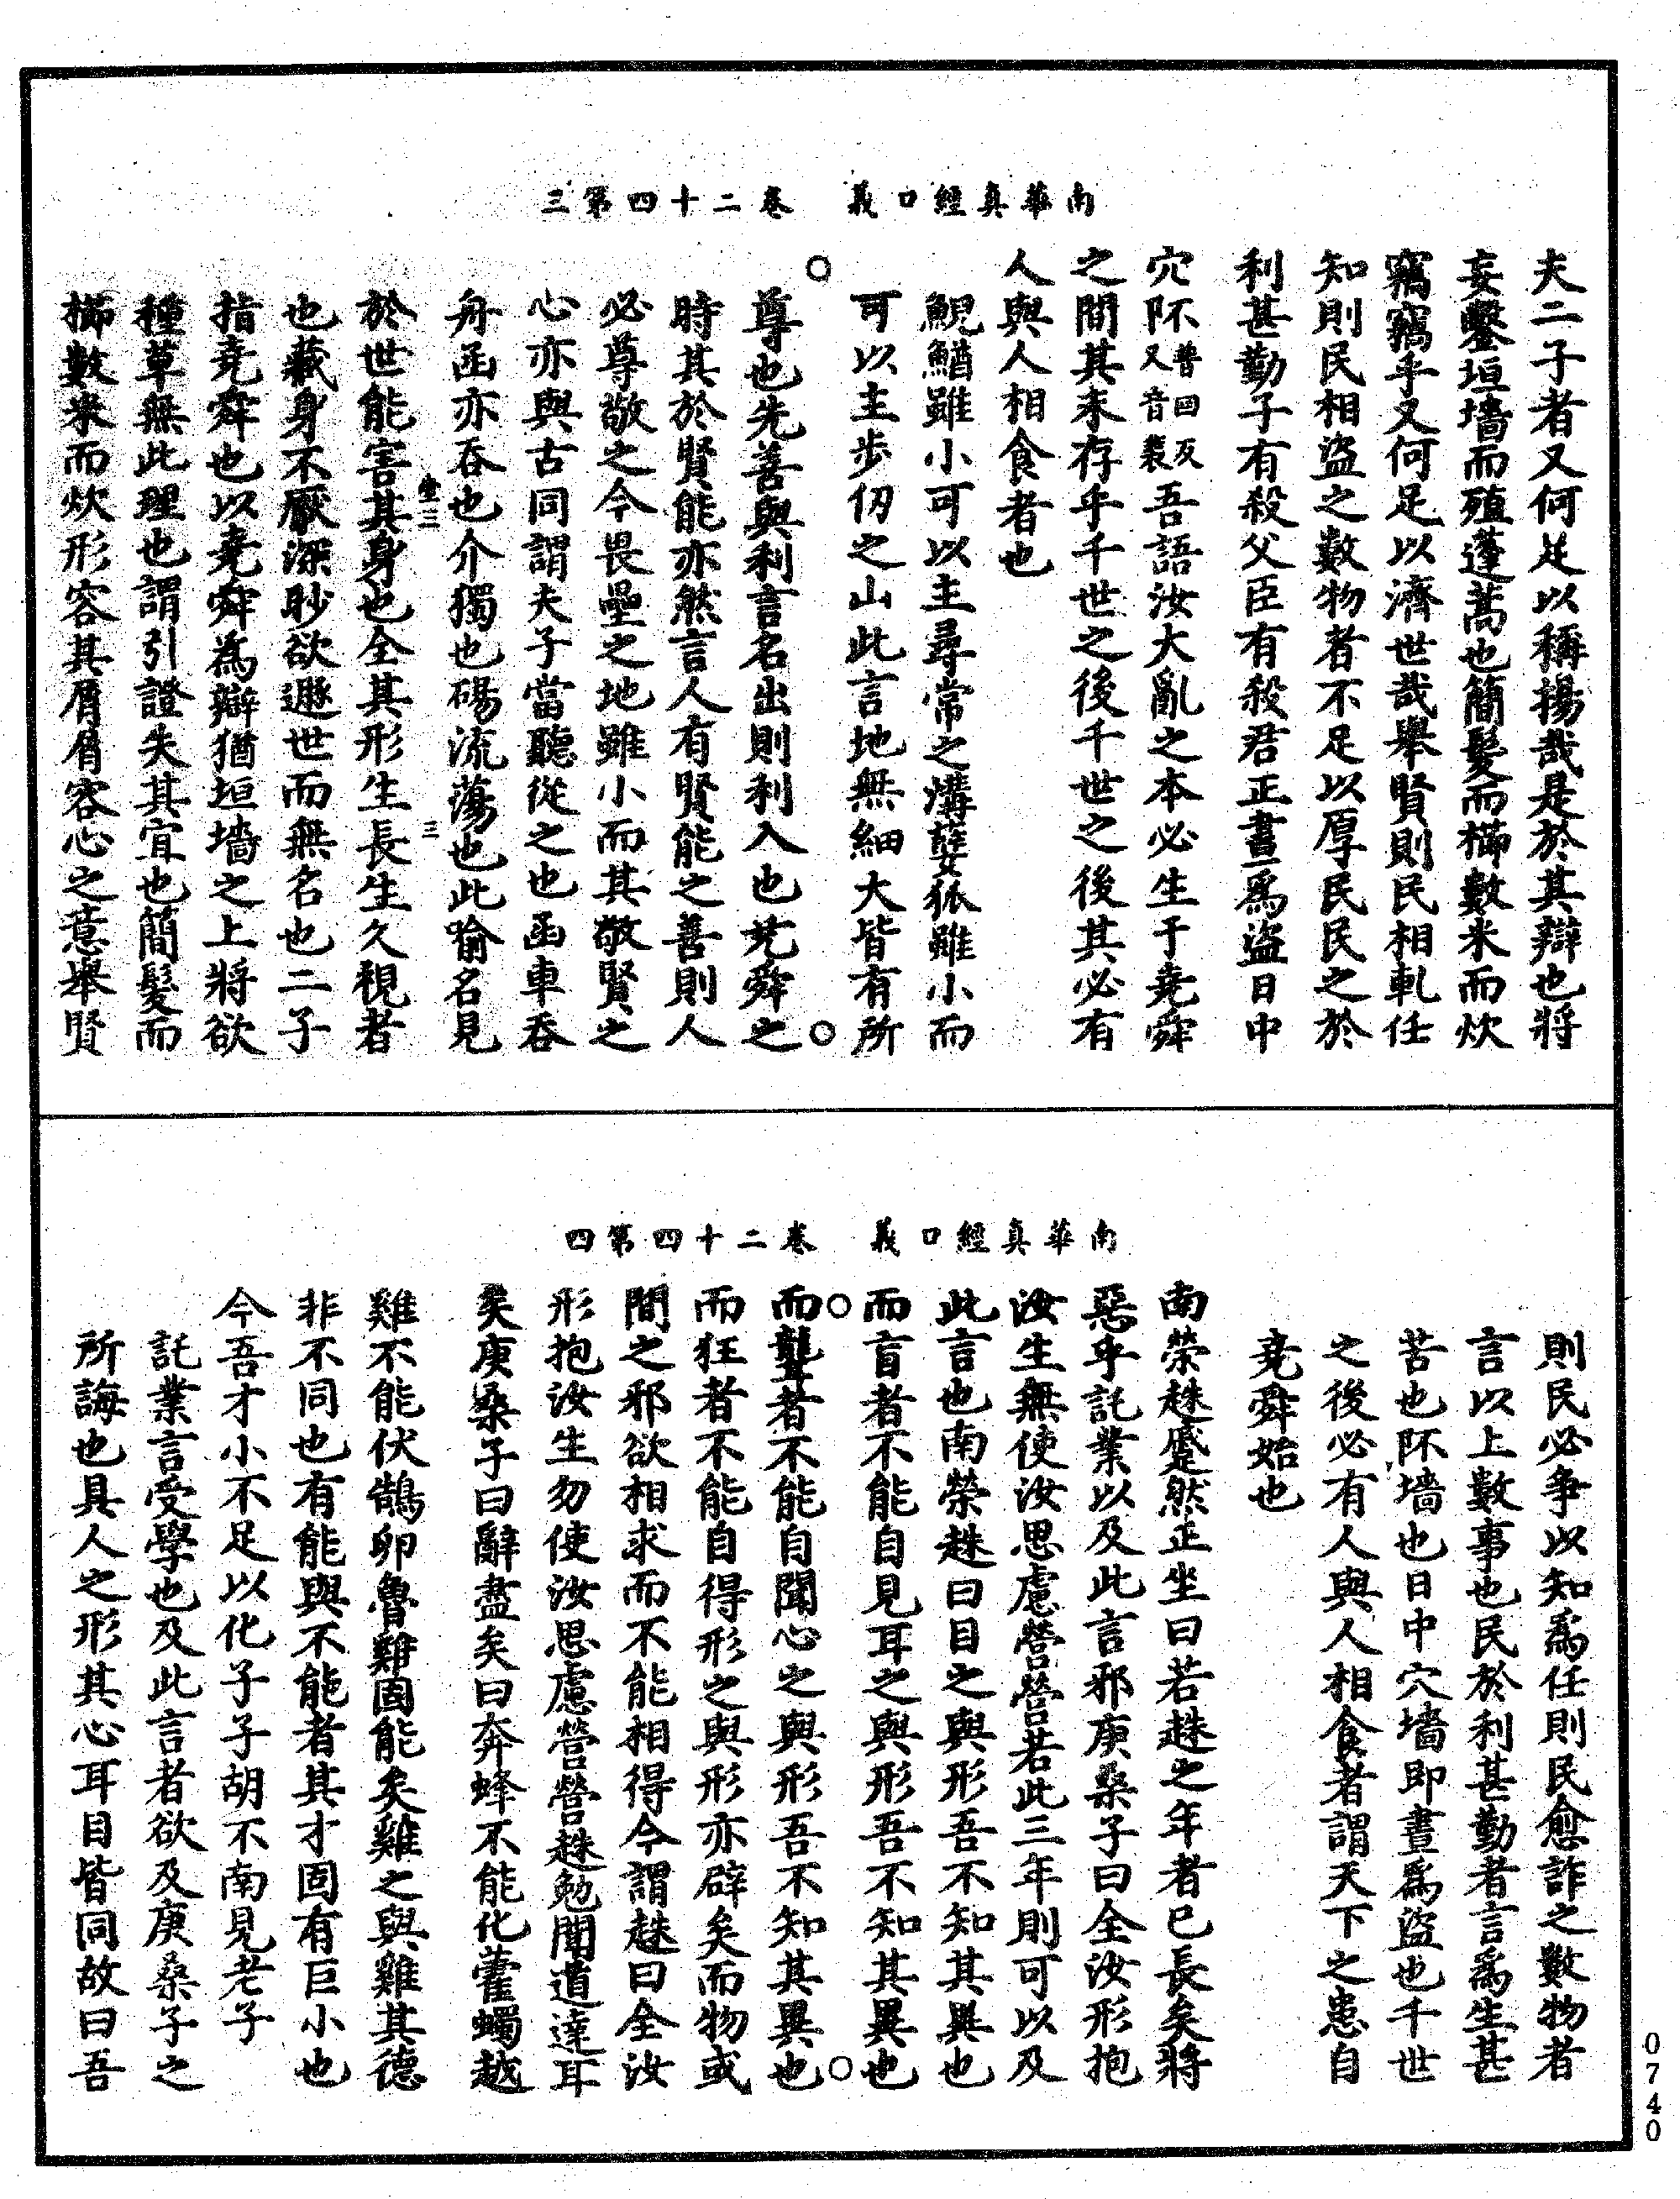 南華真經口義　卷二十四第三
夫二子者又何足以稱揚哉是於其辯也將
妄鑿垣墻而殖蓬蒿也簡髮而櫛數米而炊
竊竊乎又何足以濟世哉舉賢則民相軋任
知則民相盜之數物者不足以厚民民之於
利甚勤子有殺父臣有殺君正晝爲盜日中
穴阫普回反又音裴吾語汝大亂之本必生于堯舜
之間其末存乎千世之後千世之後其必有
人與人相食者也
鯢鰌雖小可以主尋常之溝㜸狐雖小而
可以主步仞之山此言地無細大皆有所
尊也先善與利言名出則利入也堯舜之
時其於賢能亦然言人有賢能之善則人
必尊敬之今畏壘之地雖小而其敬賢之
心亦與古同謂夫子當聽從之也函車吞
舟函亦吞也介獨也碭流蕩也此喻名見
坐三　三
於世能害其身也全其形生長生久視者
也藏身不厭深眇欲遯世而無名也二子
指堯舜也以堯舜為辯猶垣墻之上將欲
種草無此理也謂引證失其宜也簡髮而
櫛數米而炊形容其屑屑容心之意舉賢
南華真經口義　卷二十四第四
則民必爭以知爲任則民愈詐之數物者
言以上數事也民於利甚勤者言爲生甚
苦也阫墻也日中穴墻即晝爲盜也千世
之後必有人與人相食者謂天下之患自
堯舜始也
南榮趎蹙然正坐曰若趎之年者已長矣將
惡乎託業以及此言邪庚桑子曰全汝形抱
汝生無使汝思慮營營若此三年則可以及
此言也南榮趎曰目之與形吾不知其異也
而盲者不能自見耳之與形吾不知其異也
而聾者不能自聞心之與形吾不知其異也
而狂者不能自得形之與形亦辟矣而物或
間之邪欲相求而不能相得今謂趎曰全汝
形抱汝生勿使汝思慮營營趎勉聞道達耳
矣庚桑子曰辭盡矣曰奔蜂不能化藿蠋越
雞不能伏鵠卵魯雞固能矣雞之與雞其德
非不同也有能與不能者其才固有巨小也
今吾才小不足以化子子胡不南見老子
託業言受學也及此言者欲及庚桑子之
所誨也具人之形其心耳目皆同故曰吾
0740